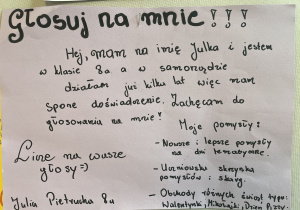 Głosuj na mnie!!!
Hej, mam na imię Julka i jestem
w klasie 8a a w samorządzie
działam już kilku lat więc mam
spore doświadczenie. Zachęcam do
głosowania na mnie!
Moje pomysły:
- Nowsze i lepsze pomysły
na dni tematyczne.
Liczę na wasze
głosy =)
- Uczniowska skrzynka
pomysłów i skarg.
- Obchody różnych świąt typu:
Walentynki, Mikołajki, Dzień Pizzy
Julia Pietruska 8a